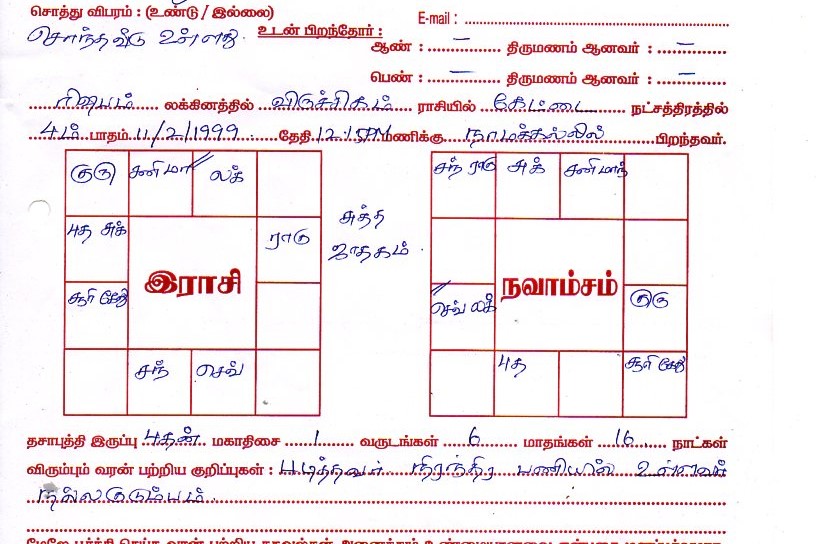 சொத்து விபரம் : (உண்டு / இல்லை)
E-mail :
சொந்தவீடு உள்ளது. உடன் பிறந்தோர் :
ஆண் : – திருமணம் ஆனவர் : –
பெண் : – திருமணம் ஆனவர் : –
ரிஷபம் லக்கினத்தில் விருச்சிகம் ராசியில் கேட்டை நட்சத்திரத்தில்
4ம் பாதம் 11/2/1999 தேதி 12.15PM மணிக்கு நாமக்கல்லில் பிறந்தவர்.
குரு சனி மா லக்
சந் ராகு சுக் சனி மாந்
புத சுக் ராகு
சுத்த
ஜாதகம்
இராசி
நவாம்சம்
சூரி கேது
செவ் லக் குரு
சந் செவ்
புத சூரி கேது
தசாபுத்தி இருப்பு புதன் மகாதிசை 1 வருடங்கள் 6 மாதங்கள் 16 நாட்கள்
விரும்பும் வரன் பற்றிய குறிப்புகள் : படித்தவர் நிரந்திர பணியில் உள்ளவர்
நல்லகுடும்பம்.